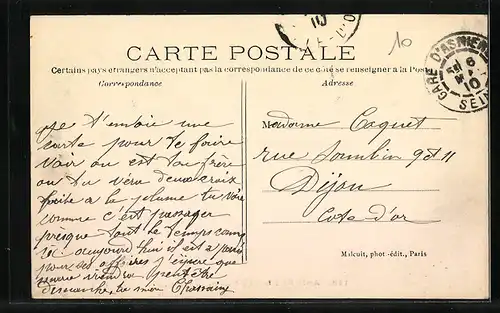 10
CARTE POSTALE
Certains pays étrangers n'acceptant pas la correspondance de ce côté se renseigner à la Poste
Correspondance
Adresse
GARE D'ASNIÈRES
6
10
SEINE
ge t'envoie une
carte pour te faire
voir ou est ton frère
ou tu vera deux croix
faite a la plume tu voi
comme c'est passager
presque tout le temps comme
aujourd'hui il est a
pour des affaires j'espere que
viendra peut etre
dimanche
Madame Coquet
rue 9 et 11
Dijon
Cote-d'or
Malcuit, phot.-édit., Paris